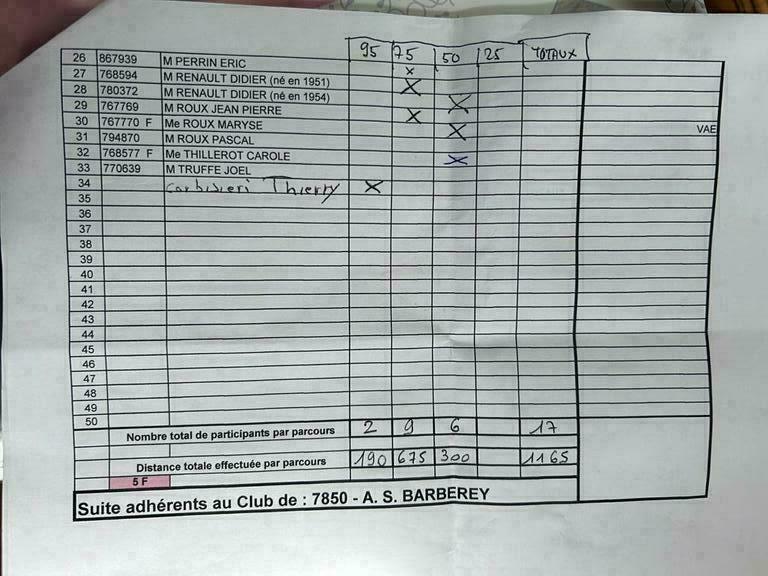 95 75 50 25 TOTAUX
26 867939 M PERRIN ERIC
27 768594 M RENAULT DIDIER (né en 1951) x
28 780372 M RENAULT DIDIER (né en 1954) X
29 767769 M ROUX JEAN PIERRE X
30 767770 F Me ROUX MARYSE X VAE
31 794870 M ROUX PASCAL X
32 768577 F Me THILLEROT CAROLE
33 770639 M TRUFFE JOEL X
34 Thierry X
35
36
37
38
39
40
41
42
43
44
45
46
47
48
49
50
Nombre total de participants par parcours 2 9 6 17
Distance totale effectuée par parcours 190 675 300 1165
5 F
Suite adhérents au Club de : 7850 - A. S. BARBEREY